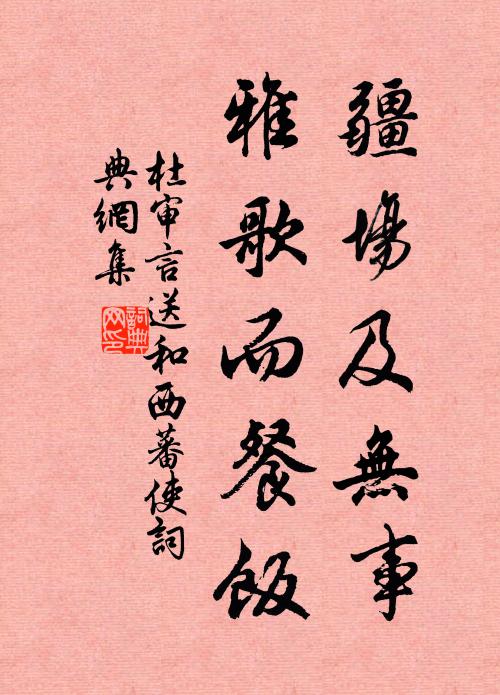 疆場及無事
雅歌而餐飯
杜審言送和西蕃使詞
典網集
詞典網印